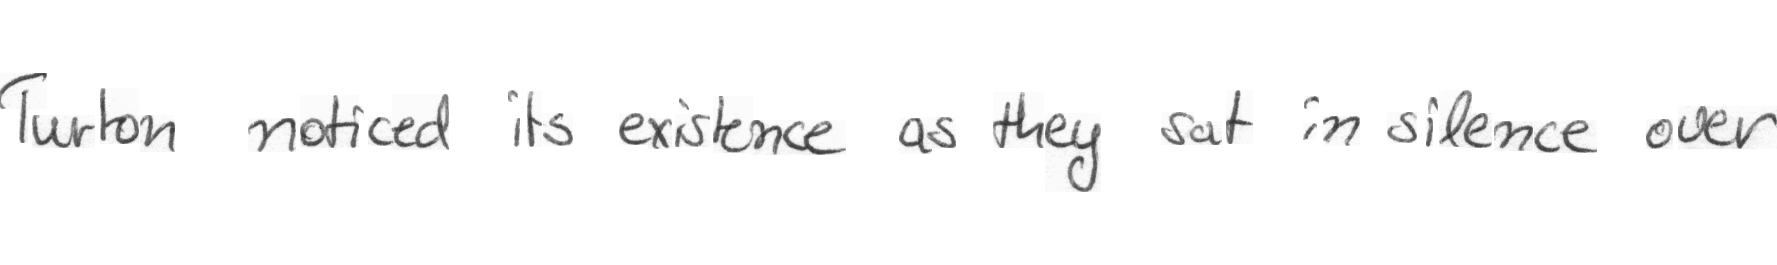 Turton noticed its existence as they sat in silence over